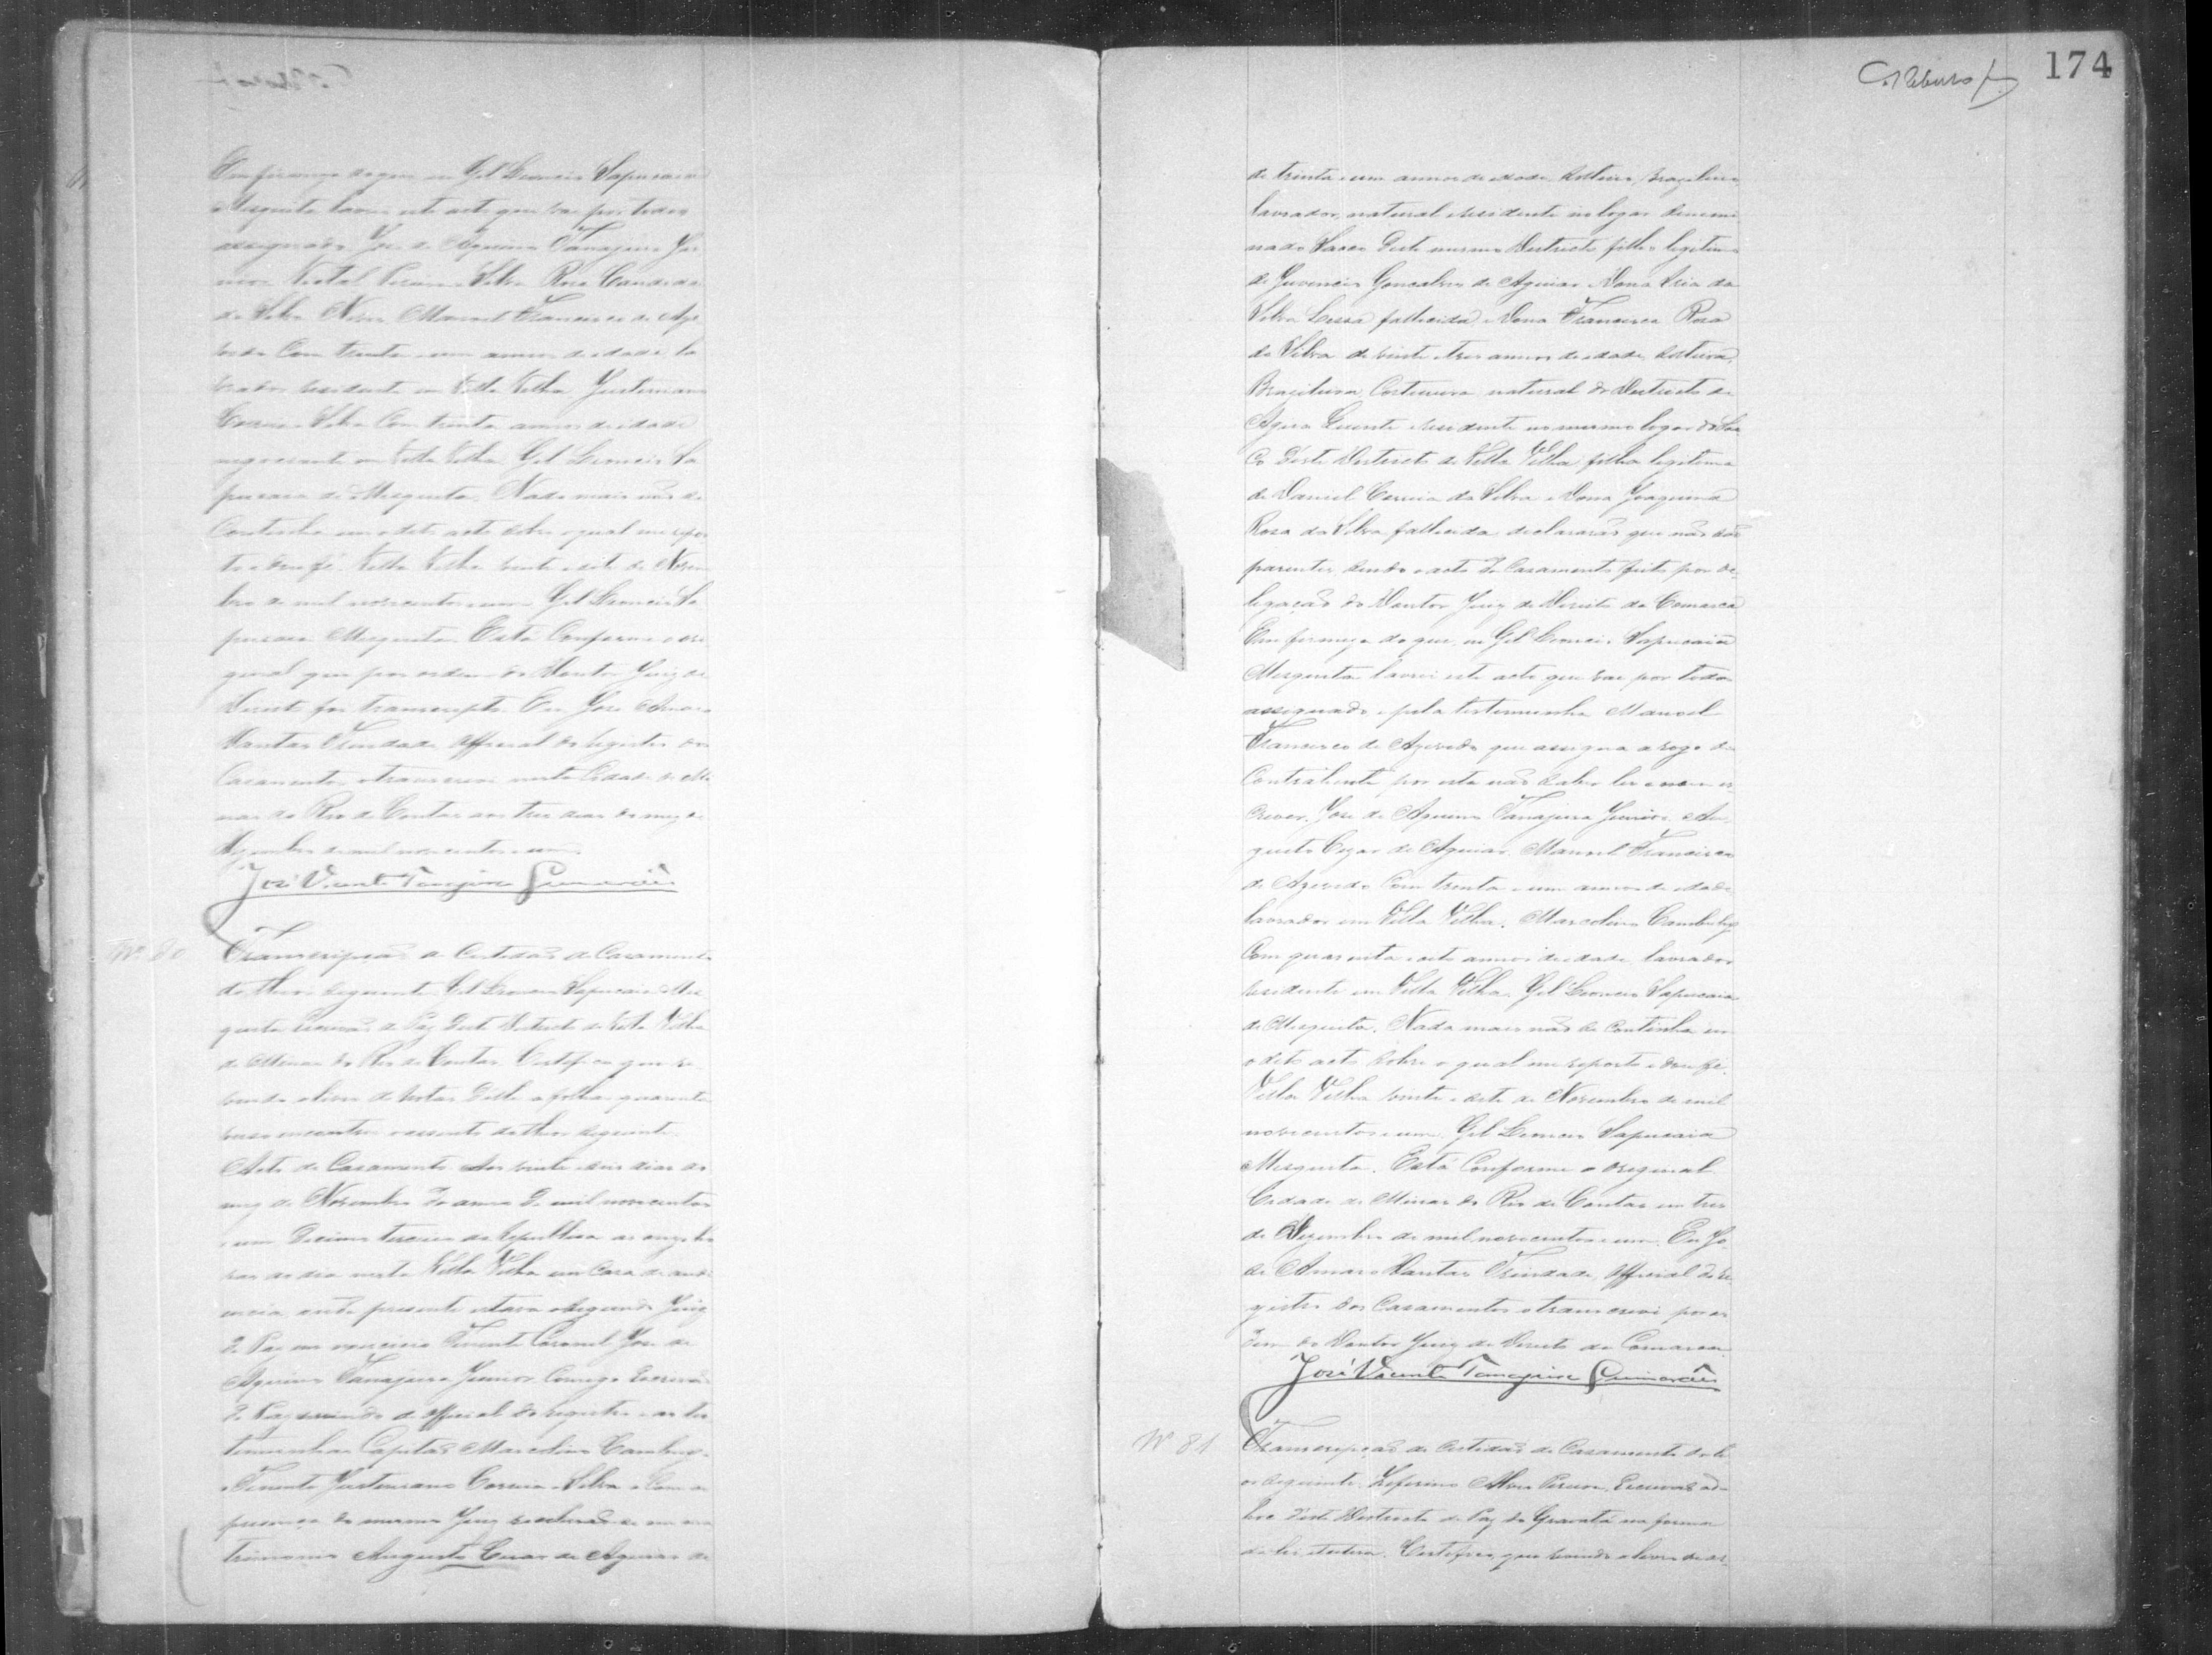 Em firmeza do que eu Gil Leoncio Sapucaia
Mesquita lavrei este acto que vae por todos
assignado José de Aquino Tanajura Ju
nior Vital Pereira Silva Rosa Candida
da Silva Neves Manoel Francisco de Aze
vedo Com trinta e um annos de idade, la
vrador residente em Villa Velha Justiniano
Correia Silva Com trinta annos de idade
negociante em Villa Velha Gil Leoncio Sa
pucaia de Mesquita. Nada mais não se
Continha em o dito acto sobre o qual me repor
to e dou fé. Villa Velha vinte e sete de Novem
bro de mil novecentos e um Gil Leoncio Sa
pucaia Mesquita. Está Conforme o ori
ginal que por ordem do Doutor Juiz de
Direito foi transcripto. Eu José Amaro
Dantas Trindade Official do registro dos
Casamentos o transcrevi nesta Cidade de Mi
nas do Rio de Contas aos tres dias do mez de
Dezembro de mil novecentos e um.
José Vicente Tanajura Guimarães
Nº 80
Transcripção de Certidão de Casamento
do theor seguinte Gil Leoncio Sapucaia Mes
quita Escrivão de Paz deste Districto de Villa Velha
de Minas do Rio de Contas. Certifico que re
vendo o livro de notas delle a folha quarenta
verso encontrei o assento do theor seguinte.
Acto de Casamento. Aos vinte e seis dias do
mez de Novembro do anno de mil novecentos
e um Decimo terceiro da Republica as onze ho
ras do dia nesta Villa Velha em Casa de audi
encia, onde presente estava o segundo Juiz
de Paz em exercicio Tenente Coronel José de
Aquino Tanajura Junior, Comigo Escrivão
de Paz servindo de official do registro e as tes
temunhas Capitão Marcolino Cambuhy
e Tenente Justiniano Correia Silva e Com a
presença do mesmo Juiz receberão-se em ma
trimonio Augusto Cesar de Aguiar de
174
de trinta e um annos de idade Solteiro, Brazileiro,
lavrador, natural e residente no logar denomi
nado Sacco deste mesmo Districto filho legitimo
de Juvencio Gonçalves de Aguiar e Dona Lria da
Silva Lessa fallecida, e Dona Francisca Rosa
da Silva de vinte e tres annos de idade, Solteira,
Brazileira, Costureira natural do Districto de
Agua Quente e residente no mesmo logar do Sac
co deste Districto de Villa Velha filha legitima
de Daniel Correia da Silva e Dona Joaquina
Rosa da Silva fallecida declararão que não são
parentes, sendo o acto de Casamento feito por de
legação do Doutor Juiz de Direito da Comarca
Em firmeza do que, eu Gil Leoncio Sapucaia
Mesquita lavrei este acto que vae por todos
assignado e pela testemunha Manoel
Francisco de Azevedo que assigna a rogo da
Contrahente por esta não saber ler e nem es
crever. José de Aquino Tanajura Junior. Au
gusto Cezar de Aguiar. Manoel Francisco
de Azevedo Com trenta e um annos de idade
lavrador em Villa Velha. Marcolino Cambuhy
Com quarenta e oito annos de idade, lavrador
residente em Villa Velha. Gil Leoncio Sapucaia
de Mesquita. Nada mais não se Continha em
o dito acto sobre o qual me reporto e dou fé.
Villa Velha vinte e sete de Novembro de mil
novecentos e um. Gil Leoncio Sapucaia
Mesquita. Está Conforme o original
Cidade de Minas do Rio de Contas em tres
de Dezembro de mil novecentos e um. Eu Jo
sé Amaro Dantas Trindade, Official do re
gistro dos Casamentos o transcrevi por or
dem do Doutor Juiz de Direito da Comarca.
José Vicente Tanajura Guimarães
Nº 81
Transcripção de Certidão de Casamento do te
or seguinte. Zeferino Alves Pereira, Escrivão ad-
hoc deste Districto de Paz do Gravatá na forma
da lei etcetera. Certifico, que revendo o livro de as-